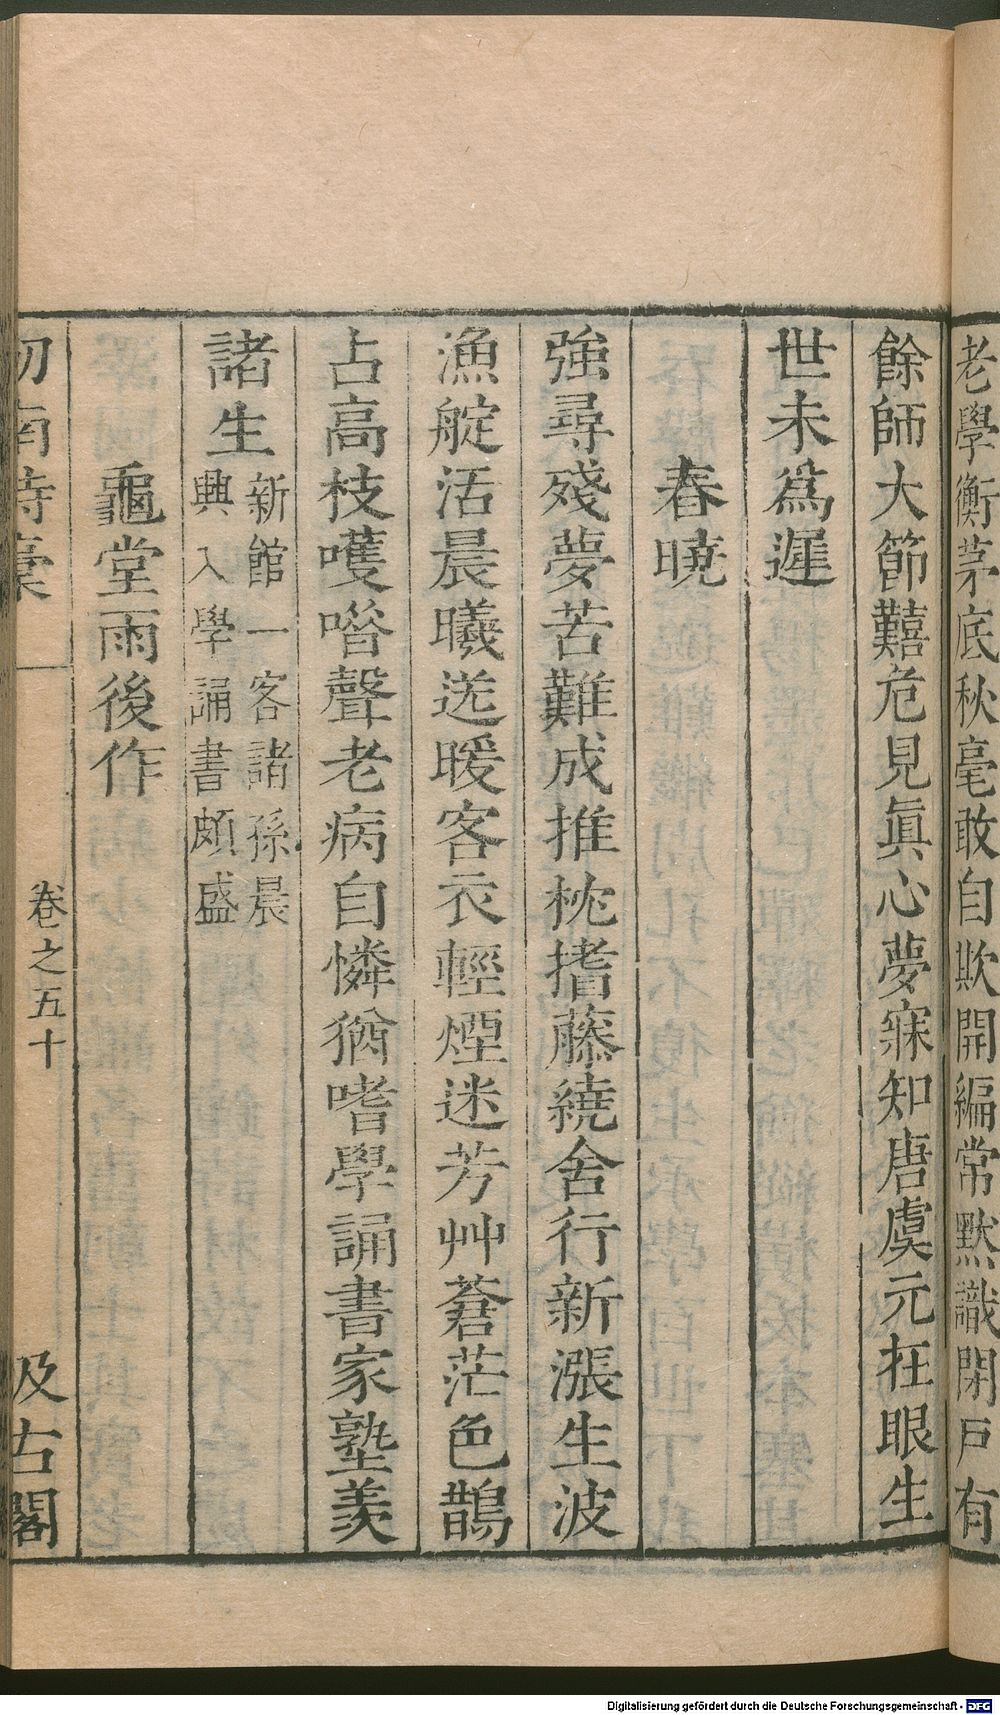 老學衡茅底秋毫敢自欺開編常默識閉戶有
餘師大節囏危見眞心夢寐知唐虞元在眼生
世未爲遲
春曉
強尋殘夢苦難成推枕搘藤繞舍行新漲生波
漁艇活晨曦送暖客衣輕煙迷芳艸蒼茫色鵲
占高枝嚄唶聲老病自憐猶嗜學誦書家塾羨
諸生新館一客諸孫晨
興入學誦書頗盛
龜堂雨後作
劒南詩稾
卷之五十
汲古閣
Digitalisierung gefördert durch die Deutsche Forschungsgemeinschaft - DFG